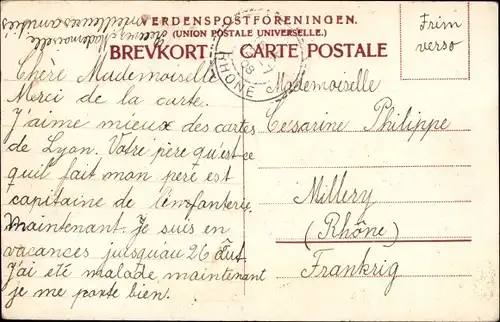 VERDENSPOSTFORENINGEN.
(UNION POSTALE UNIVERSELLE.)
BREVKORT. CARTE POSTALE
Frim
verso
RHONE
Chère Mademoiselle
Merci de la carte.
J'aime mieux des cartes
de Lyon. Votre père qu'est-ce
qu'il fait mon père est
capitaine de l'enfanterie.
Maintenant. Je suis en
vacances jusqu'au 26 Out.
J'ai eté malade maintenant
je me porte bien.
Mademoiselle
meilleures amitiés
Mademoiselle
Cesarine Philippe
Millery
(Rhône)
Frankrig